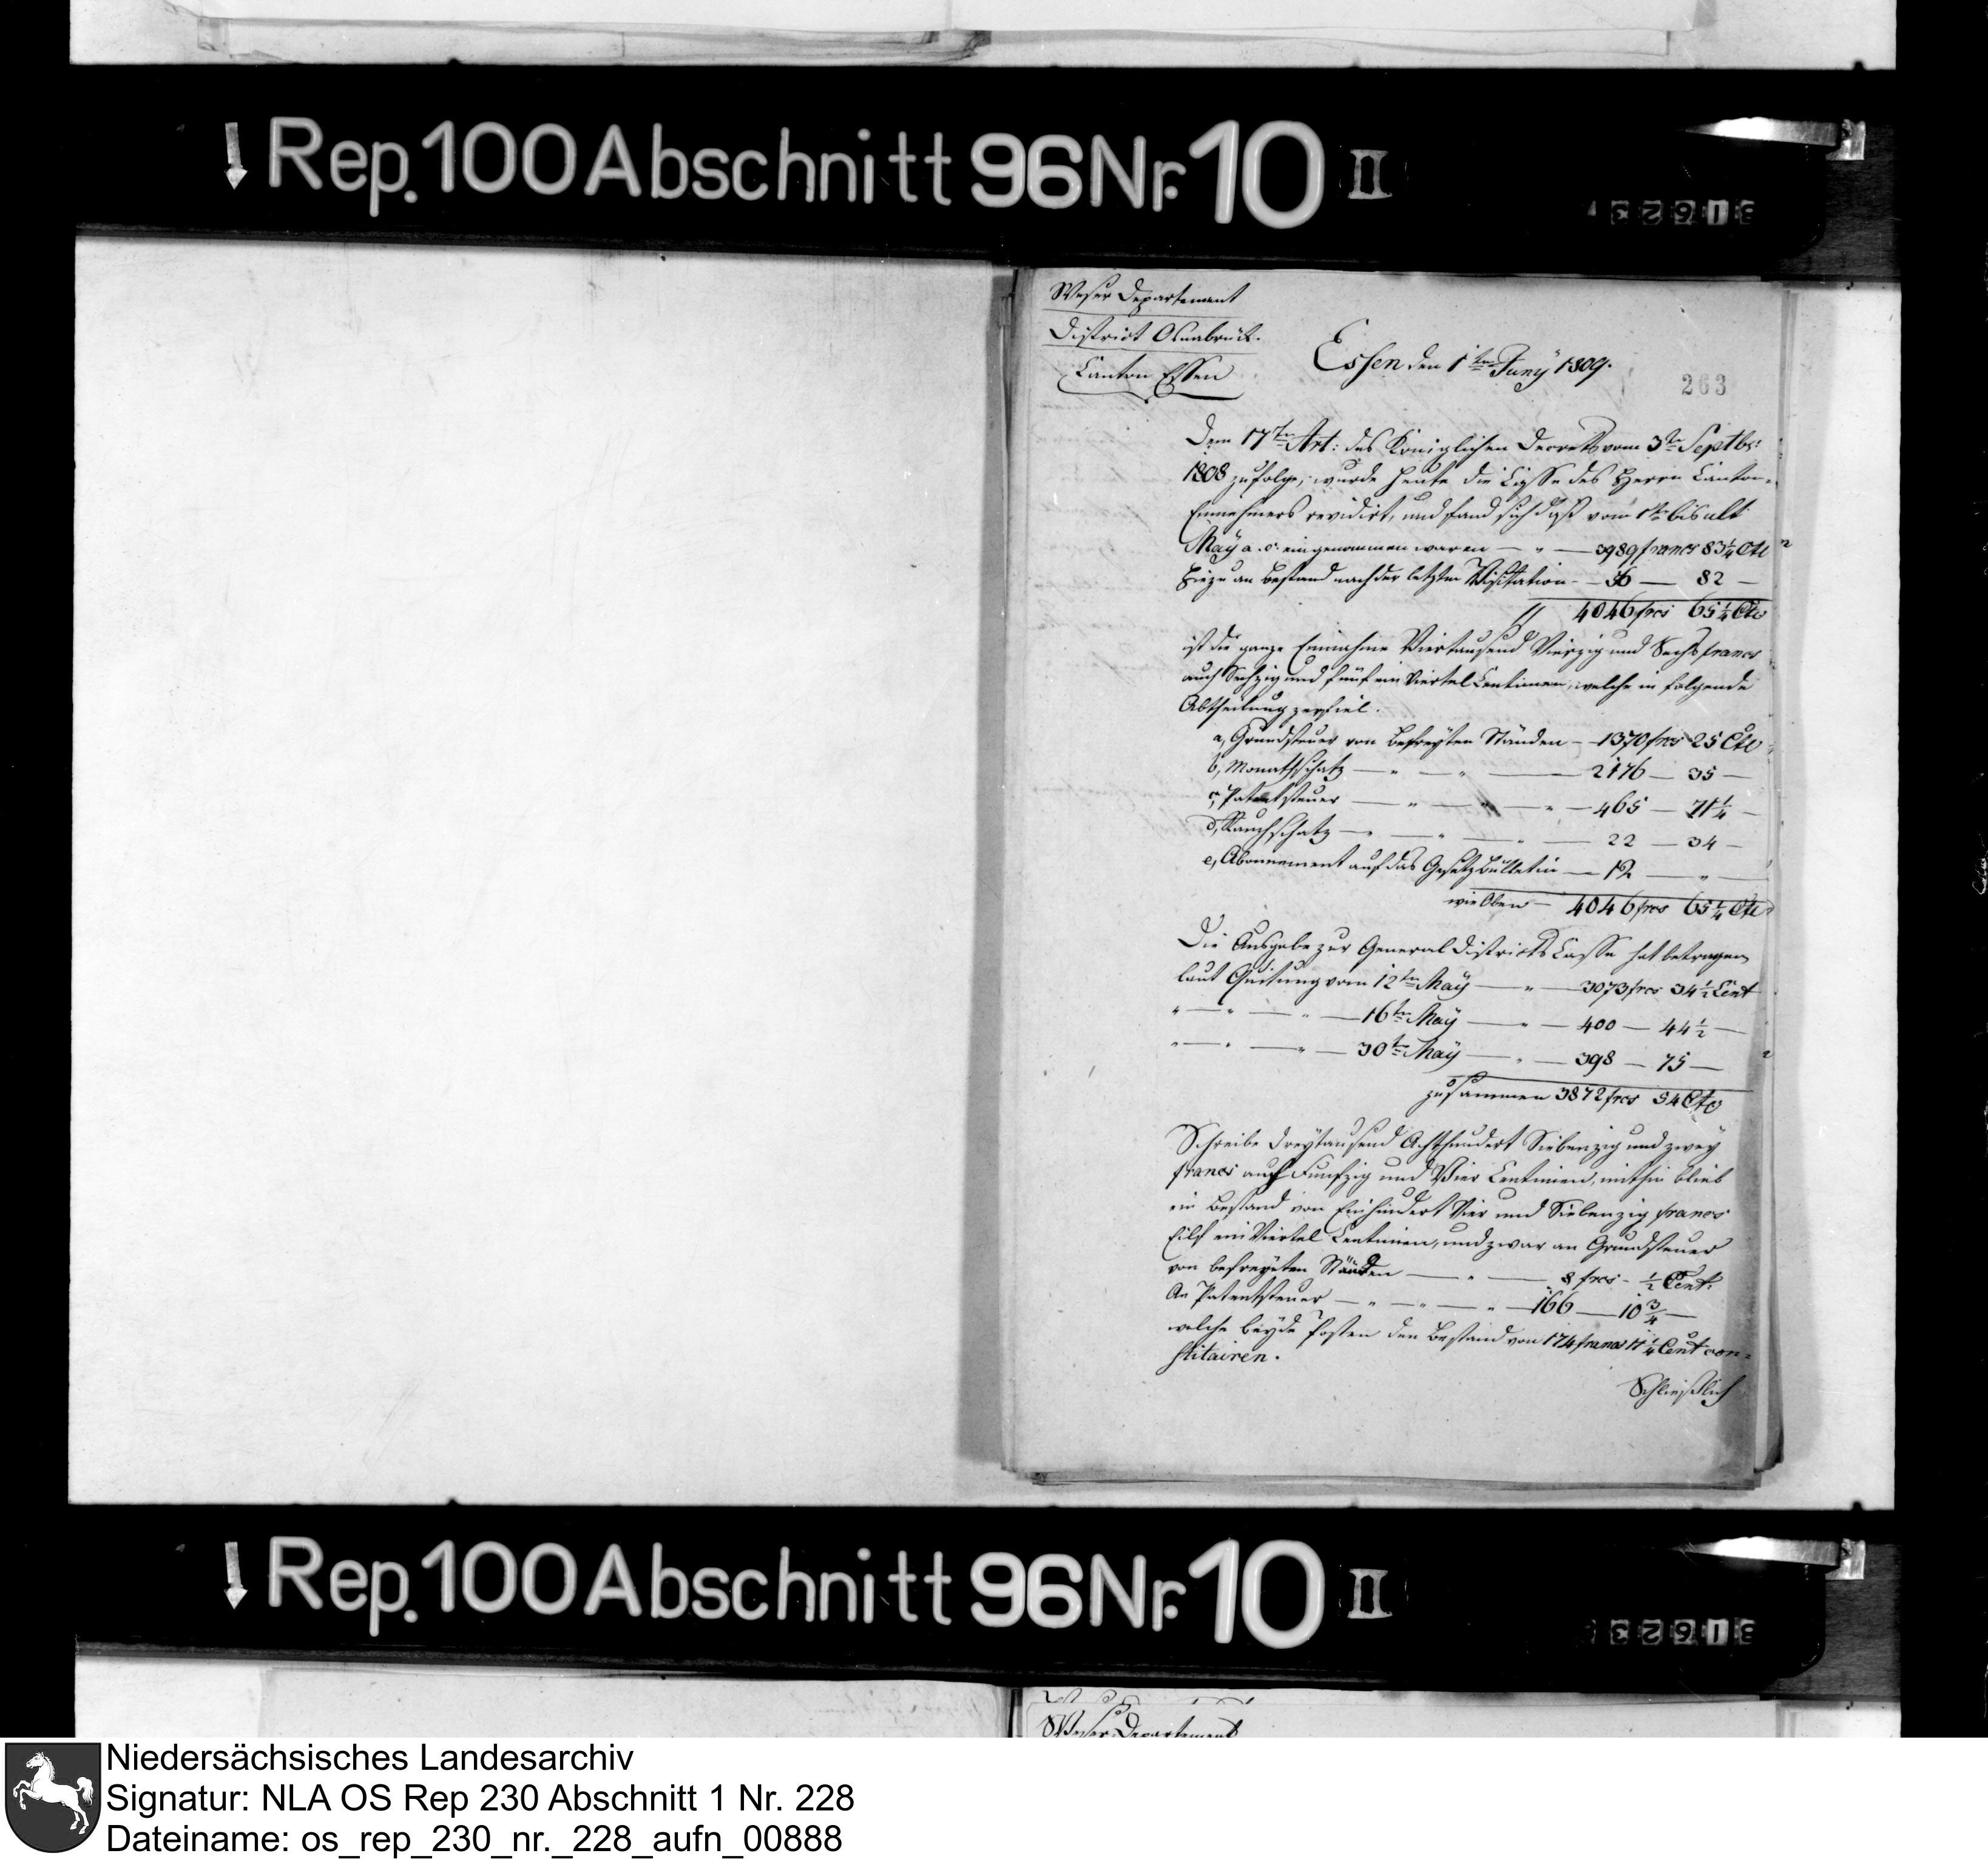 Rep. 100 Abschnitt 96 Nr. 10 II
Weser Departement
District Osnabrück.
Canton Essen
Essen den 1ten Juny 1809.
263
Dem 17ten Art: des Königlichen Decrets vom 3ten Septbr:
1808 zufolge, wurde heute die Casse des Herrn Canton-
Einnehmers revidirt, und fand sich daß vom 1ten bis ult
May a. c. eingenommen waren — " — 3989 francs 83¼ Cts
Hiezu an Bestand nach der letzten Visitation - 56 — 82 —
// 4046 frcs 65¼ Cts
ist die ganze Einnahme Viertausend Vierzig und Sechs francs
auch Sechzig und fünf ein Viertel Centimen, welche in folgende
Abtheilung zerfiel.
a, Grundsteuer von Befreyten Ständen - 1370 frcs 25 Cts
b, Monathschatz — " — " — 2176 — 35 —
c, Patentsteuer — " — " — " — 465 — 71¼ —
d, Rauchschatz — " — " — " — 22 — 34 —
e, Abonnement auf das Gesetzbulletin — 12 — " —
wie Oben — 4046 frcs 65¼ Cts
Die Ausgabe zur General Districts Casse hat betragen
laut Quitung vom 12ten May — " — 3073 frcs 34½ Cent
" — " — " — 16ten May — " — 400 — 44½ —
" — " — " — 30ten May — " — 398 — 75 —
zusammen 3872 frcs 54 Cts
Schreibe Dreytausend Achthundert Siebenzig und zwey
francs auch Funfzig und Vier Centimen, mithin blieb
ein Bestand von Einhundert Vier und Siebenzig francs
Eilf ein Viertel Centimen, und zwar an Grundsteuer
von befreyeten Ständen — " — 8 frcs - ½ Cent:
An Patentsteuer — " — " — " — 166 — 10¾ —
welche beyde Posten den Bestand von 174 francs 11¼ Cent con-
stitairen.
Schließlich
Rep. 100 Abschnitt 96 Nr. 10 II
Weser Departement
Niedersächsisches Landesarchiv
Signatur: NLA OS Rep 230 Abschnitt 1 Nr. 228
Dateiname: os_rep_230_nr._228_aufn_00888